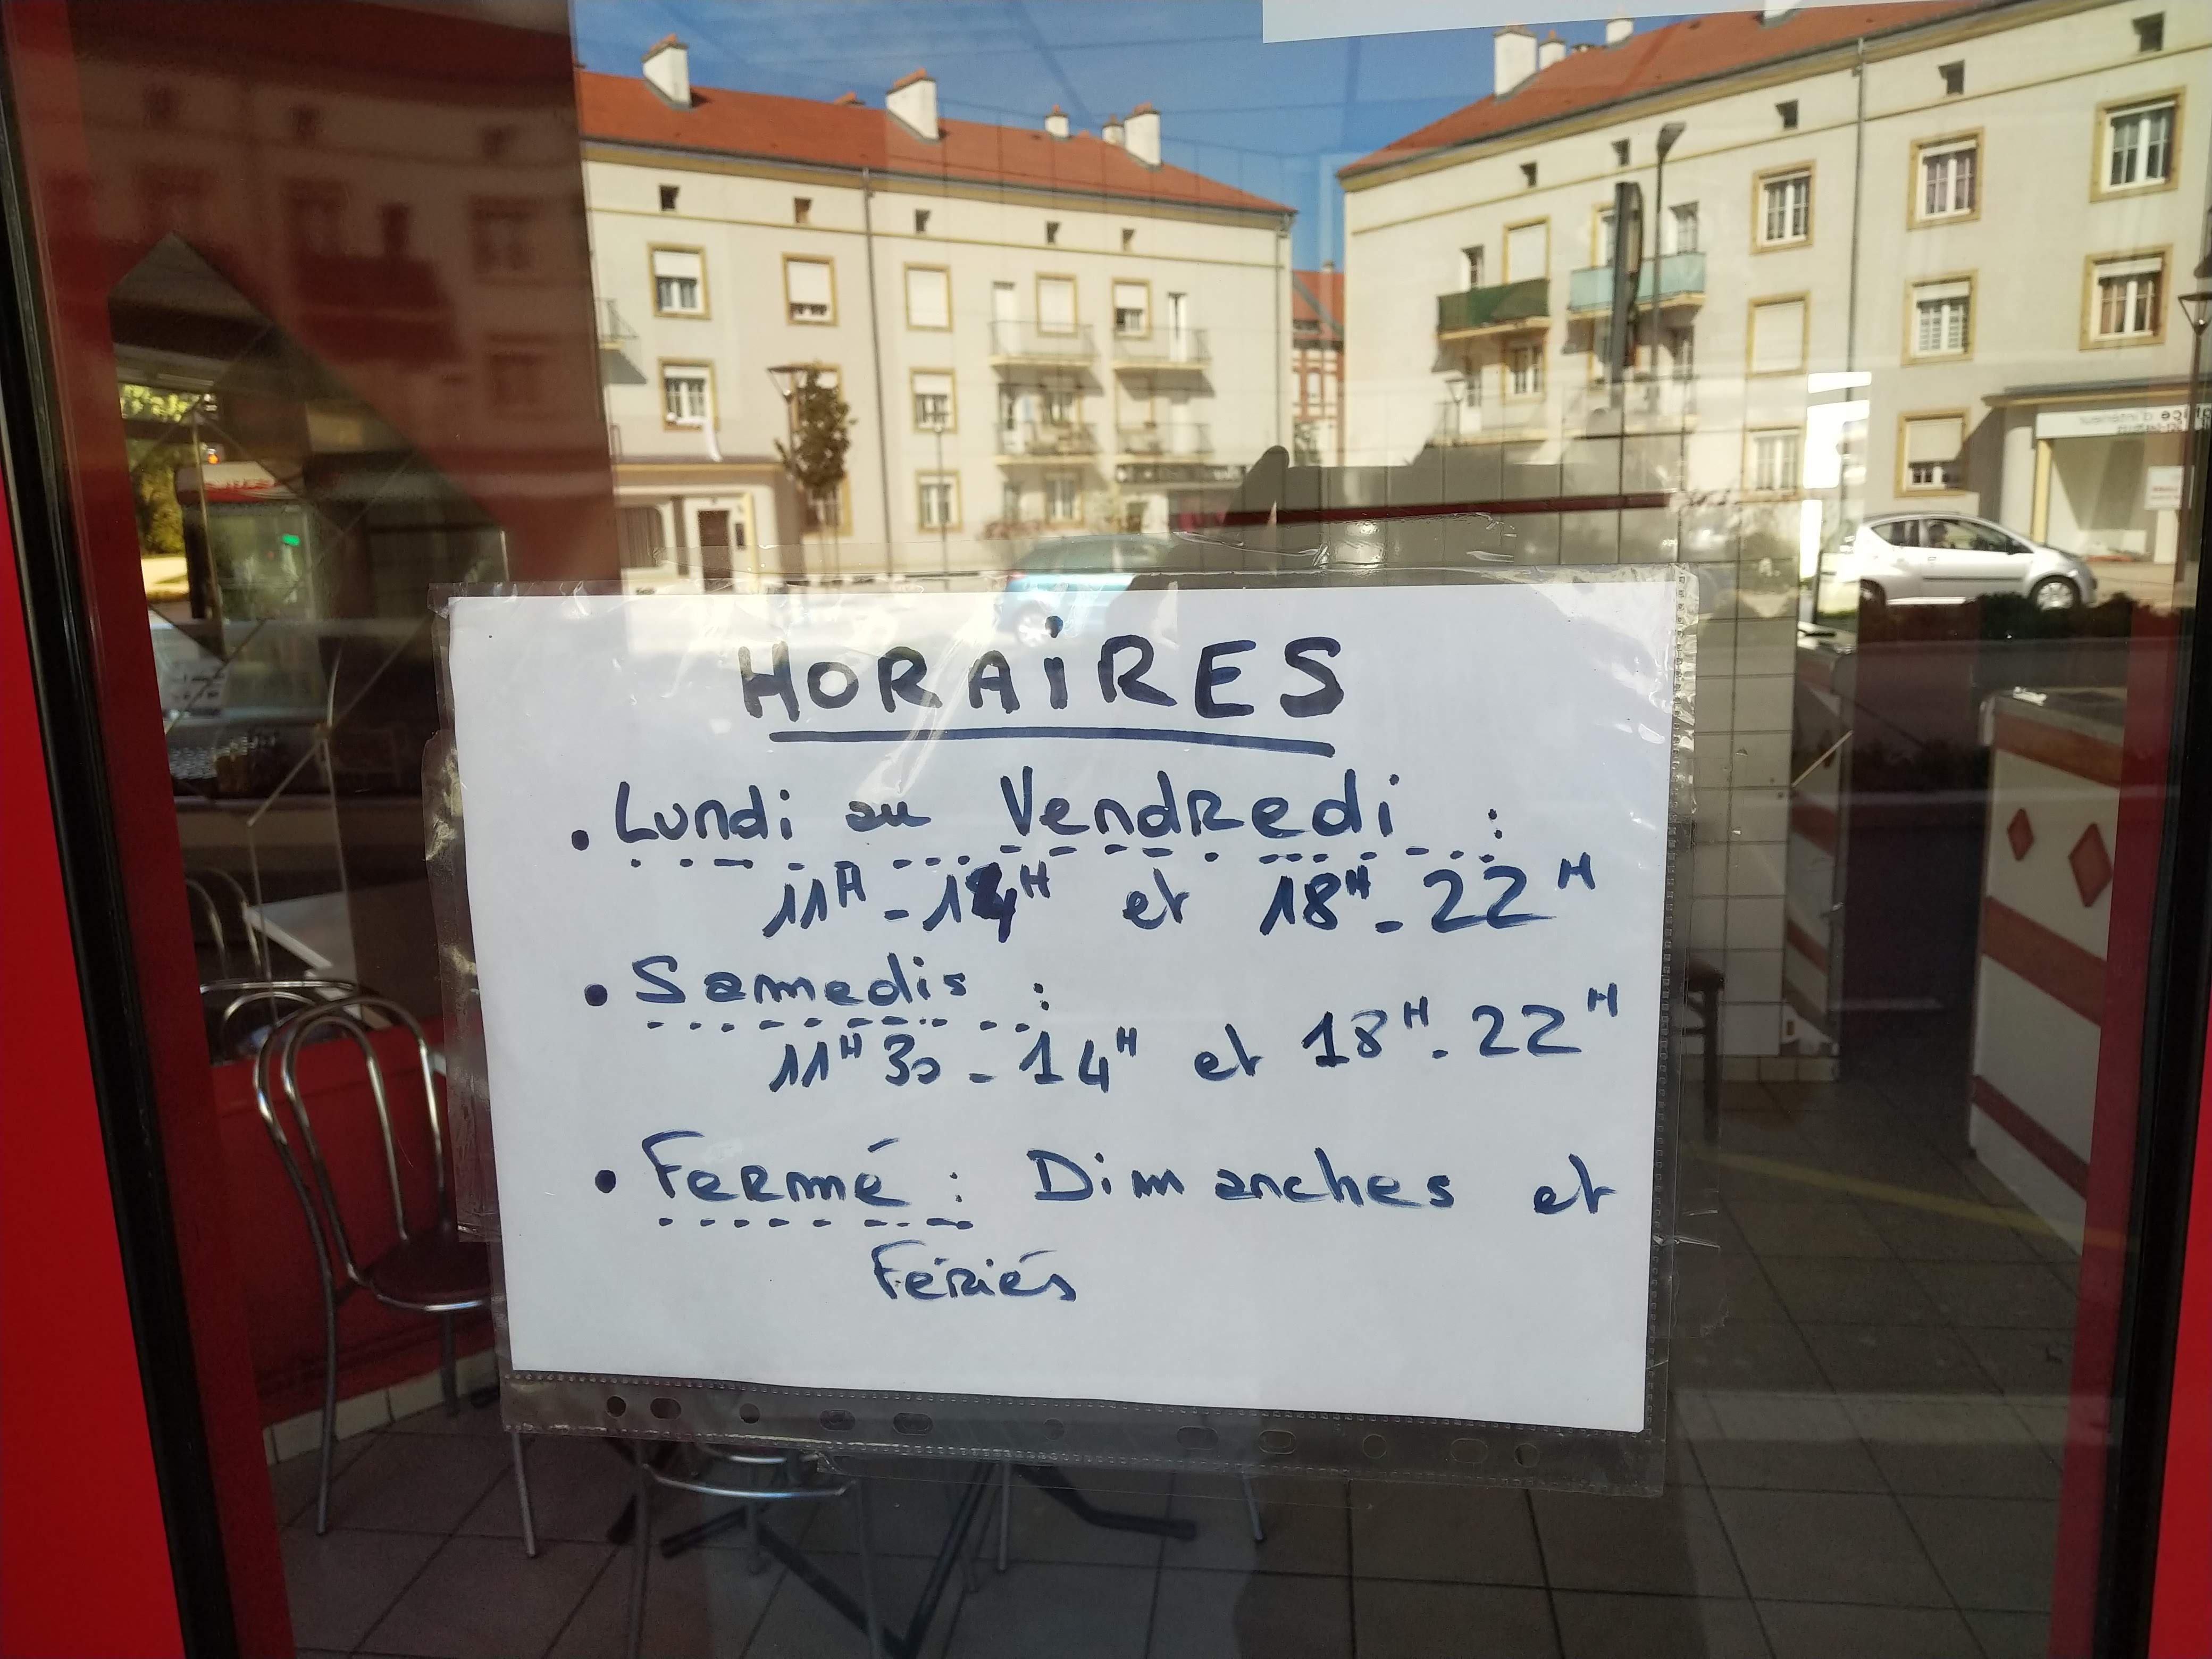 HORAiRES
. Lundi au Vendredi :
11H - 14H et 18H - 22H
. Samedis :
11H30 - 14H et 18H - 22H
. Fermé : Dimanches et
Fériés